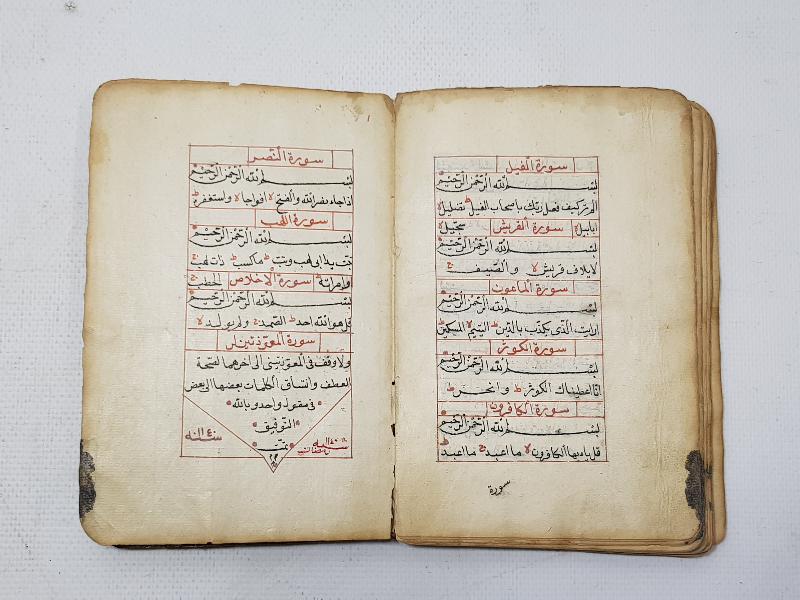 سورة الفيل
بسم الله الرحمن الرحيم
الم تر كيف فعل ربك باصحاب الفيل ط تضليل لا
ابابيل لا سورة القريش سجيل لا
بسم الله الرحمن الرحيم
لايلاف قريش لا والصيف ج
سورة الماعون
بسم الله الرحمن الرحيم
ارايت الذى يكذب بالدين ط اليتيم لا المسكين ط
سورة الكوثر
بسم الله الرحمن الرحيم
انا اعطيناك الكوثر ط وانحر ط
سورة الكافرون
بسم الله الرحمن الرحيم
قل ياءيها الكافرون لا ما اعبد ج ما اعبد ط
سورة
سورة النصر
بسم الله الرحمن الرحيم
اذا جاء نصر الله والفتح لا افواجا لا واستغفره ط
سورة اللهب
بسم الله الرحمن الرحيم
تبت يدا ابى لهب وتب ط ماكسب ط ذات لهب ج
وامراته ط سورة الاخلاص الحطب ج
بسم الله الرحمن الرحيم
قل هو الله احد ج الصمد ج ولم يولد لا
سورة المعوذتين
ولا وقف فى المعوذتين الى اخرهما لصحة
العطف واتساق الكلمات بعضها الى بعض
فى مقول واحد وبالله
التوفيق
سنة ١١٤٠
تمت